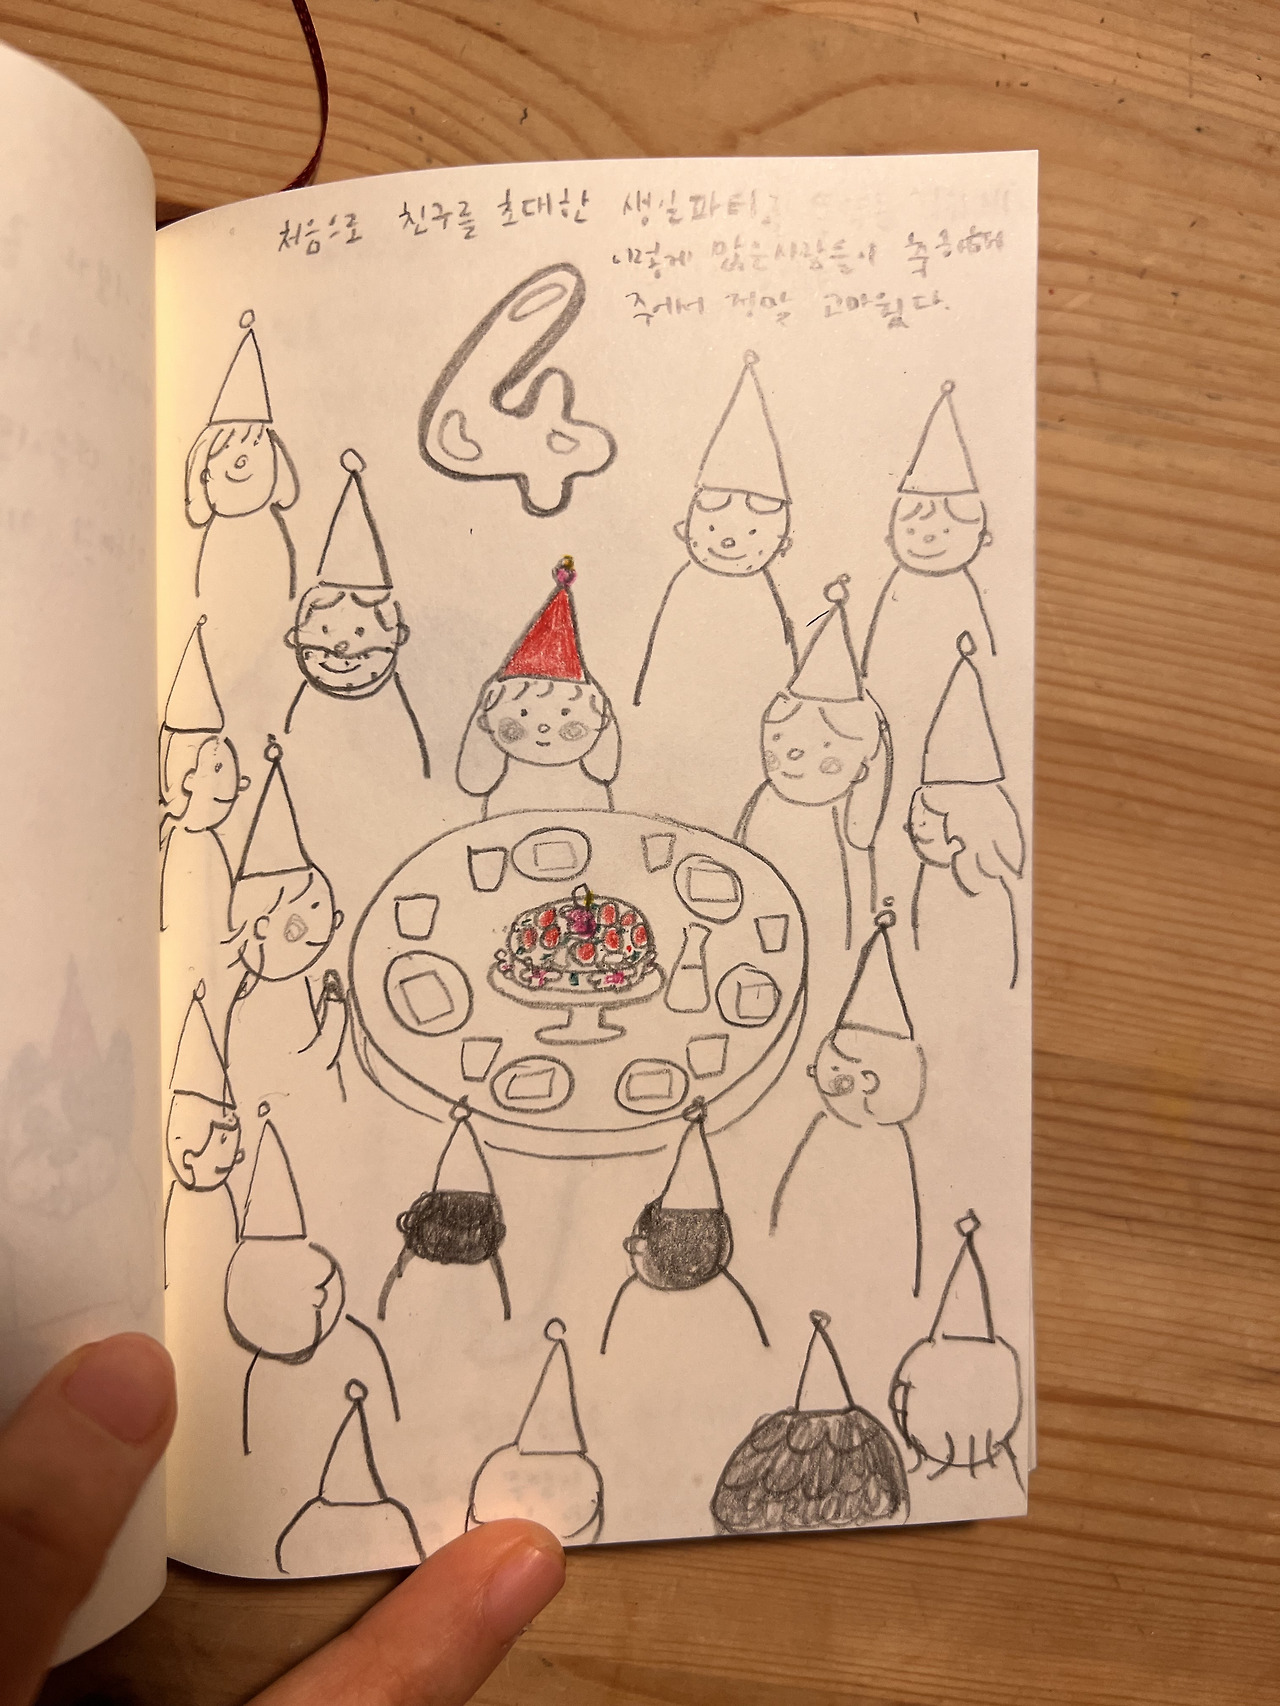 처음으로 친구를 초대한 생일파티.
이렇게 많은사람들이 축하해
주어서 정말 고마웠다.
4